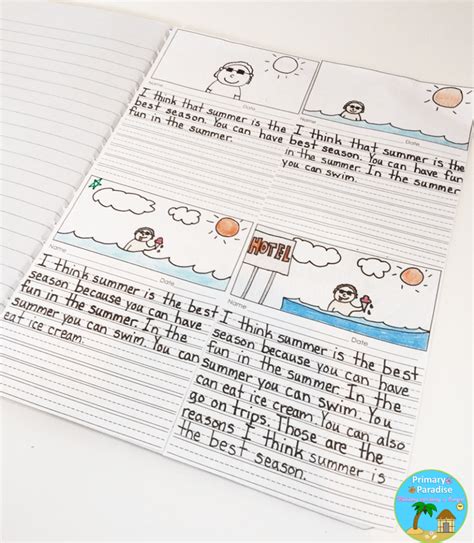 Date
I think that summer is the
best season. You can have
fun in the summer.
Date
I think that summer is the
best season. You can have fun
in the summer. In the summer
you can swim.
Name
Date
I think summer is the best
season because you can have
fun in the summer. In the
summer you can swim. You can
eat ice cream.
HOTEL
Name
Date
I think summer is the best
season because you can have
fun in the summer. In the
summer you can swim. You
can eat ice cream. You can also
go on trips. Those are the
reasons I think summer is
the best season.
Primary
Paradise